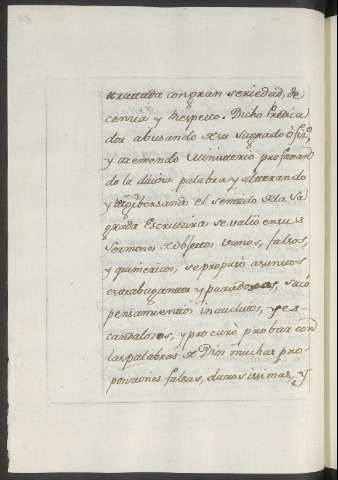 tratada con gran seriedad, de
cencia y Respeto. Dicho Predica
dor abusando de su sagrado ofizo,
y tremendo Ministerio profanan
do la divina palabra y alterando
y tergibersando el sentido de la Sa
grada Escritura se valió en sus
Sermones de objetos vanos, falsos,
y quimericos, se propuso asuntos
extrabagantes y paradoxos, sacó
pensamientos inauditos, y es
candalosos, y procuró probar con
las palabras de Dios muchas pro-
posiciones falsas, durissimas, y